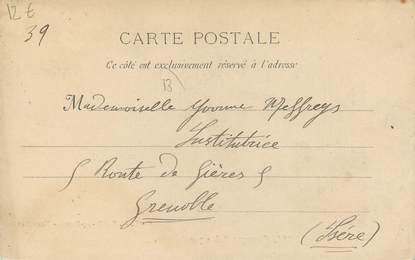 12 €
39
CARTE POSTALE
Ce côté est exclusivement réservé à l'adresse
13
Mademoiselle Yvonne Meffreys
Institutrice
Route de Gières
Grenoble
(Isère)